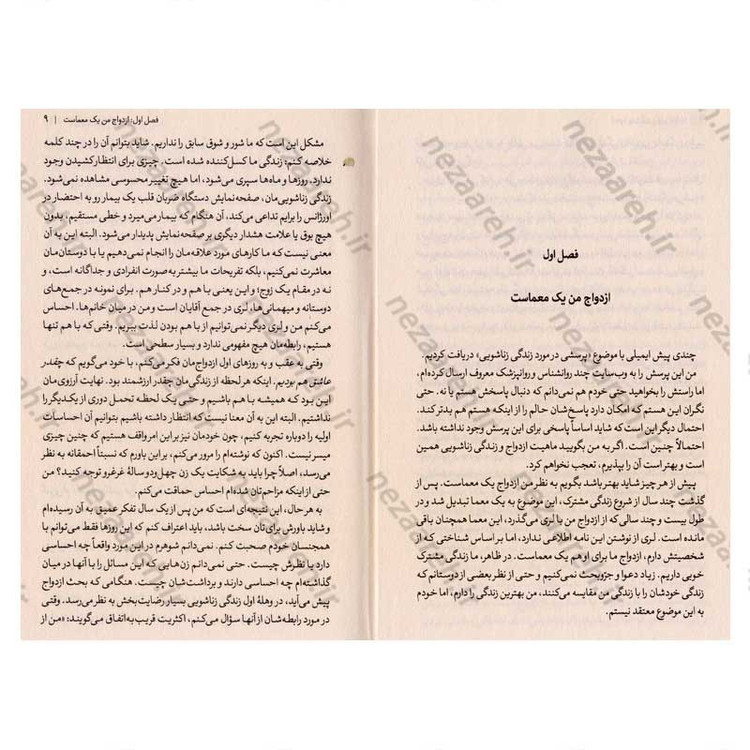 فصل اول
ازدواج من یک معماست
چندی پیش ایمیلی با موضوع «پرسشی در مورد زندگی زناشویی» دریافت کردیم.
من این پرسش را به وب‌سایت چند روانشناس و روانپزشک معروف ارسال کرده‌ام،
اما راستش را بخواهید حتی خودم هم نمی‌دانم که دنبال پاسخش هستم یا نه. حتی
نگران این هستم که امکان دارد پاسخ‌شان حالم را از اینکه هستم هم بدتر کند.
احتمال دیگر این است که شاید اساساً پاسخی برای این پرسش وجود نداشته باشد.
احتمالاً چنین است. اگر به من بگویید ماهیت ازدواج و زندگی زناشویی همین
است و بهتر است آن را بپذیرم، تعجب نخواهم کرد.
پیش از هر چیز شاید بهتر باشد بگویم به نظر من ازدواج یک معماست. پس از
گذشت چند سال از شروع زندگی مشترک، این موضوع به یک معما تبدیل شد و در
طول بیست و چند سالی که از ازدواج من با لری می‌گذرد، این معما همچنان باقی
مانده است. لری از نوشتن این نامه اطلاعی ندارد، اما بر اساس شناختی که از
شخصیتش دارم، ازدواج ما برای او هم یک معماست. در ظاهر، ما زندگی مشترک
خوبی داریم. زیاد دعوا و جروبحث نمی‌کنیم و حتی از نظر بعضی از دوستانم که
زندگی خودشان را با زندگی من مقایسه می‌کنند، من بهترین زندگی را دارم، اما خودم
به این موضوع معتقد نیستم.
فصل اول: ازدواج من یک معماست | ۹
مشکل این است که ما شور و شوق سابق را نداریم. شاید بتوانم آن را در چند کلمه
خلاصه کنم: زندگی ما کسل‌کننده شده است. چیزی برای انتظار کشیدن وجود
ندارد. روزها و ماه‌ها سپری می‌شود، اما هیچ تغییر محسوسی مشاهده نمی‌شود.
زندگی زناشویی‌مان، صفحه‌نمایش دستگاه ضربان قلب یک بیمار رو به احتضار در
اورژانس را برایم تداعی می‌کند، آن هنگام که بیمار می‌میرد و خطی مستقیم، بدون
هیچ بوق یا علامت هشدار دیگری بر صفحه‌نمایش پدیدار می‌شود. البته این به آن
معنی نیست که ما کارهای مورد علاقه‌مان را انجام نمی‌دهیم یا با دوستان‌مان
معاشرت نمی‌کنیم، بلکه تفریحات ما بیشتر به صورت انفرادی و جداگانه است، و
نه در مقام یک زوج؛ و این یعنی با هم و در کنار هم. برای نمونه در جمع‌های
دوستانه و میهمانی‌ها، لری در جمع آقایان است و من در میان خانم‌ها. احساس
می‌کنم من و لری دیگر نمی‌توانیم از با هم بودن لذت ببریم. وقتی که با هم تنها
هستیم، رابطه‌مان هیچ مفهومی ندارد و بسیار سطحی است.
وقتی به عقب و به روزهای اول ازدواج‌مان فکر می‌کنم، با خود می‌گویم که چقدر
عاشق هم بودیم. اینکه هر لحظه از زندگی‌مان چقدر ارزشمند بود. نهایت آرزوی‌مان
این بود که همیشه با هم باشیم و حتی یک لحظه تحمل دوری از یکدیگر را
نداشتیم. البته این به آن معنا نیست که انتظار داشته باشیم بتوانیم آن احساسات
اولیه را دوباره تجربه کنیم، چون خودمان نیز بر این امر واقف هستیم که چنین چیزی
میسر نیست. اکنون که نوشته‌ام را مرور می‌کنم، بر این باورم که نسبتاً احمقانه به نظر
می‌رسد، اصلاً چرا باید به شکایت یک زن چهل‌ودو سالهٔ غرغرو توجه کنید؟ من
حتی از اینکه مزاحم‌تان شده‌ام احساس حماقت می‌کنم.
به هر حال، این نتیجه‌ای است که من پس از یک سال تفکر عمیق به آن رسیده‌ام
و شاید باورش برای‌تان سخت باشد، باید اعتراف کنم که این روزها فقط می‌توانم با
همجنسان خودم صحبت کنم. نمی‌دانم شوهرم در این مورد واقعاً چه احساسی
دارد یا نظرش چیست. حتی نمی‌دانم زن‌هایی که این مسائل را با آنها در میان
گذاشته‌ام چه احساسی دارند و برداشت‌شان چیست. هنگامی که بحث ازدواج
پیش می‌آید، در وهلهٔ اول زندگی زناشویی بسیار رضایت‌بخش به نظر می‌رسد. وقتی
در مورد رابطه‌شان از آنها سؤال می‌کنم، اکثریت قریب به اتفاق می‌گویند: «من از
nezaareh.ir